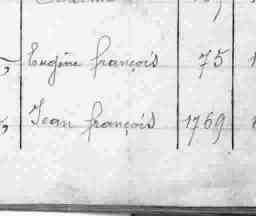 Eugène françois 75
Jean françois 1769